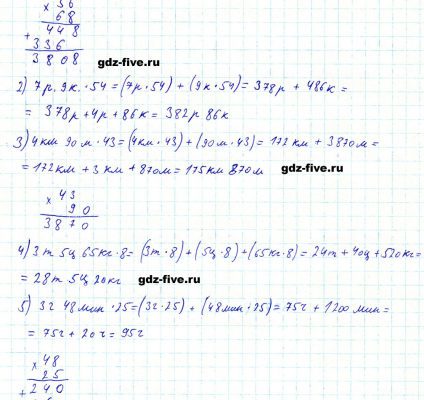 × 56
68
448
+
336
3808
gdz-five.ru
2) 7р. 9к. · 54 = (7р · 54) + (9к · 54) = 378р + 486к =
= 378р + 4р + 86к = 382р 86к
3) 4км 90м · 43 = (4км · 43) + (90м · 43) = 172км + 3870м =
= 172км + 3км + 870м = 175км 870м
gdz-five.ru
× 43
90
3870
4) 3т 5ц 65кг · 8 = (3т · 8) + (5ц · 8) + (65кг · 8) = 24т + 40ц + 520кг =
= 28т 5ц 20кг
gdz-five.ru
5) 3ч 48мин · 25 = (3ч · 25) + (48мин · 25) = 75ч + 1200мин =
= 75ч + 20ч = 95ч
× 48
25
+ 240